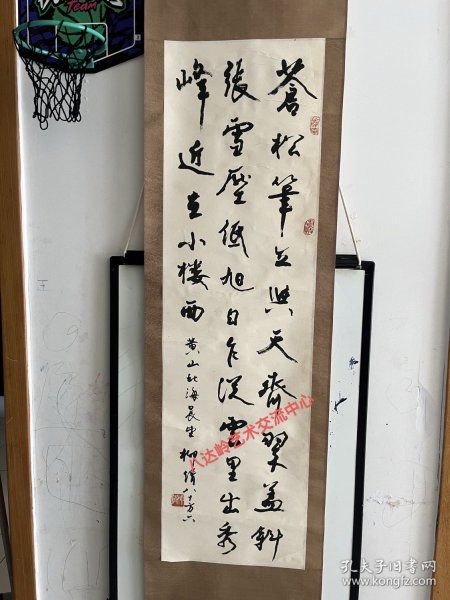 苍松笔立与天齐翠盖斜
张雪压低旭日乍从云里出秀
峰近在小楼西
黄山北海晨望 柳倩八十方六
八达岭艺术交流中心
Team
孔夫子旧书网
www.kongfz.com